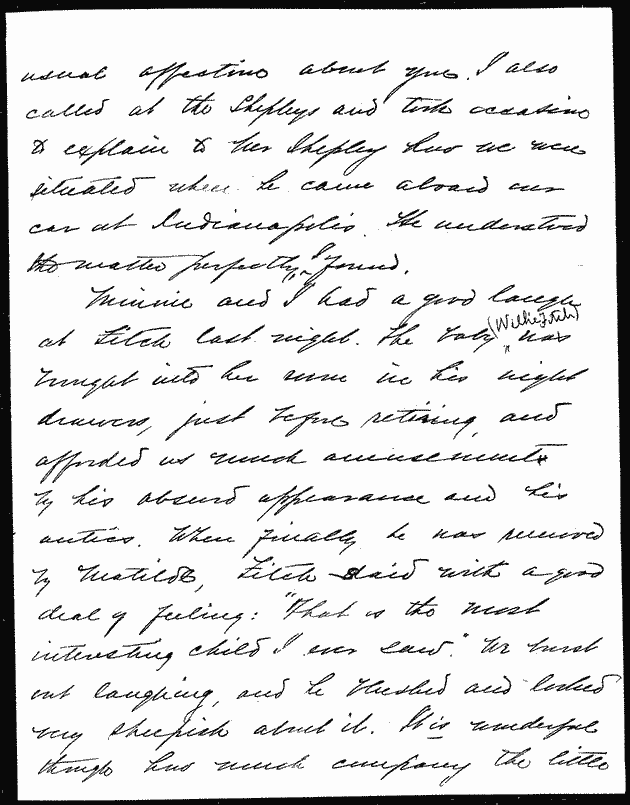 usual affection about you. I also
called at the Shepleys and took occasion
to explain to Mrs Shepley how we were
situated when he came aboard our
car at Indianapolis. He understood
the matter perfectly, I found.
Minnie and I had a good laugh
at Fitch last night. The baby (Willie Fitch) was
brought into her room in his night
drawers, just before retiring, and
afforded us much amusement
by his absurd appearance and his
antics. When finally he was removed
by Matilda, Fitch said with a good
deal of feeling: "That is the most
interesting child I ever saw." We burst
out laughing, and he blushed and looked
very sheepish about it. It is wonderful
though how much company the little